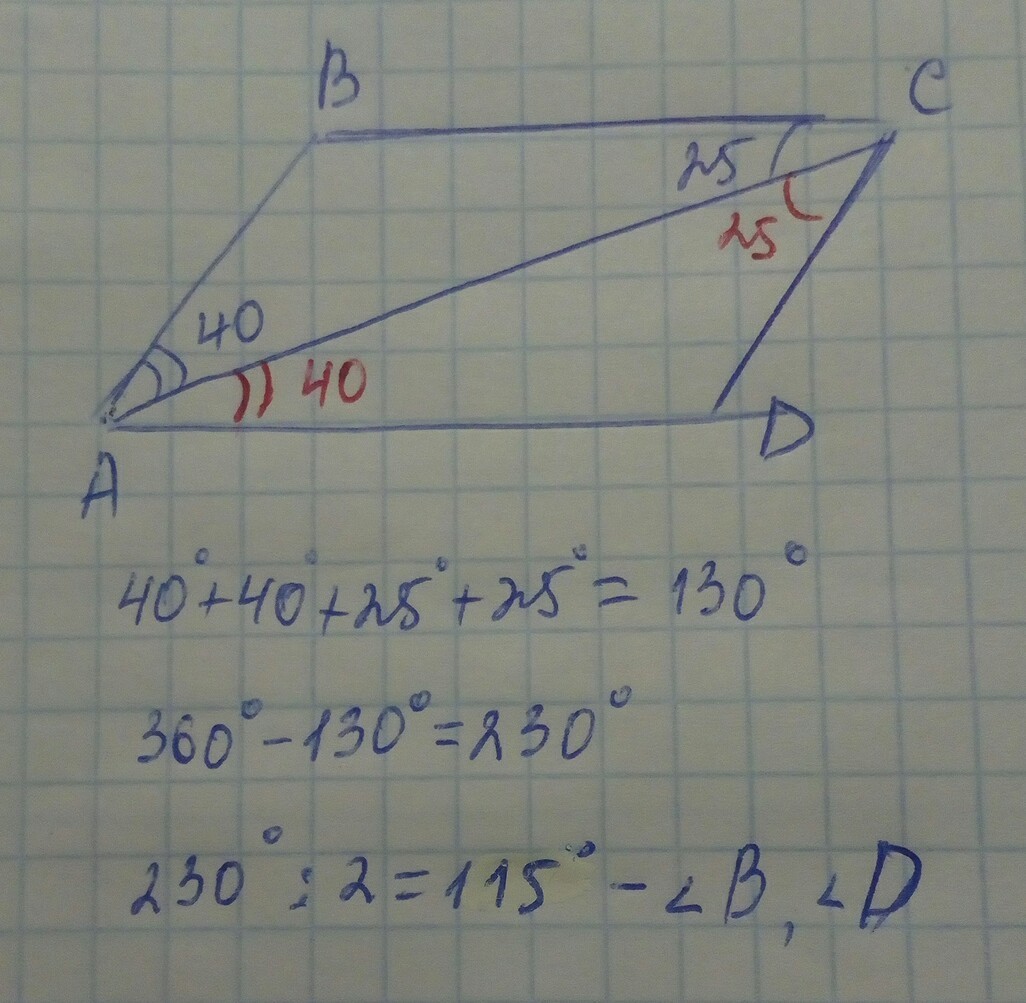 B
C
25
25
40
40
D
A
40°+40°+25°+25°= 130°
360°-130°=230°
230° : 2=115° - ∠B, ∠D